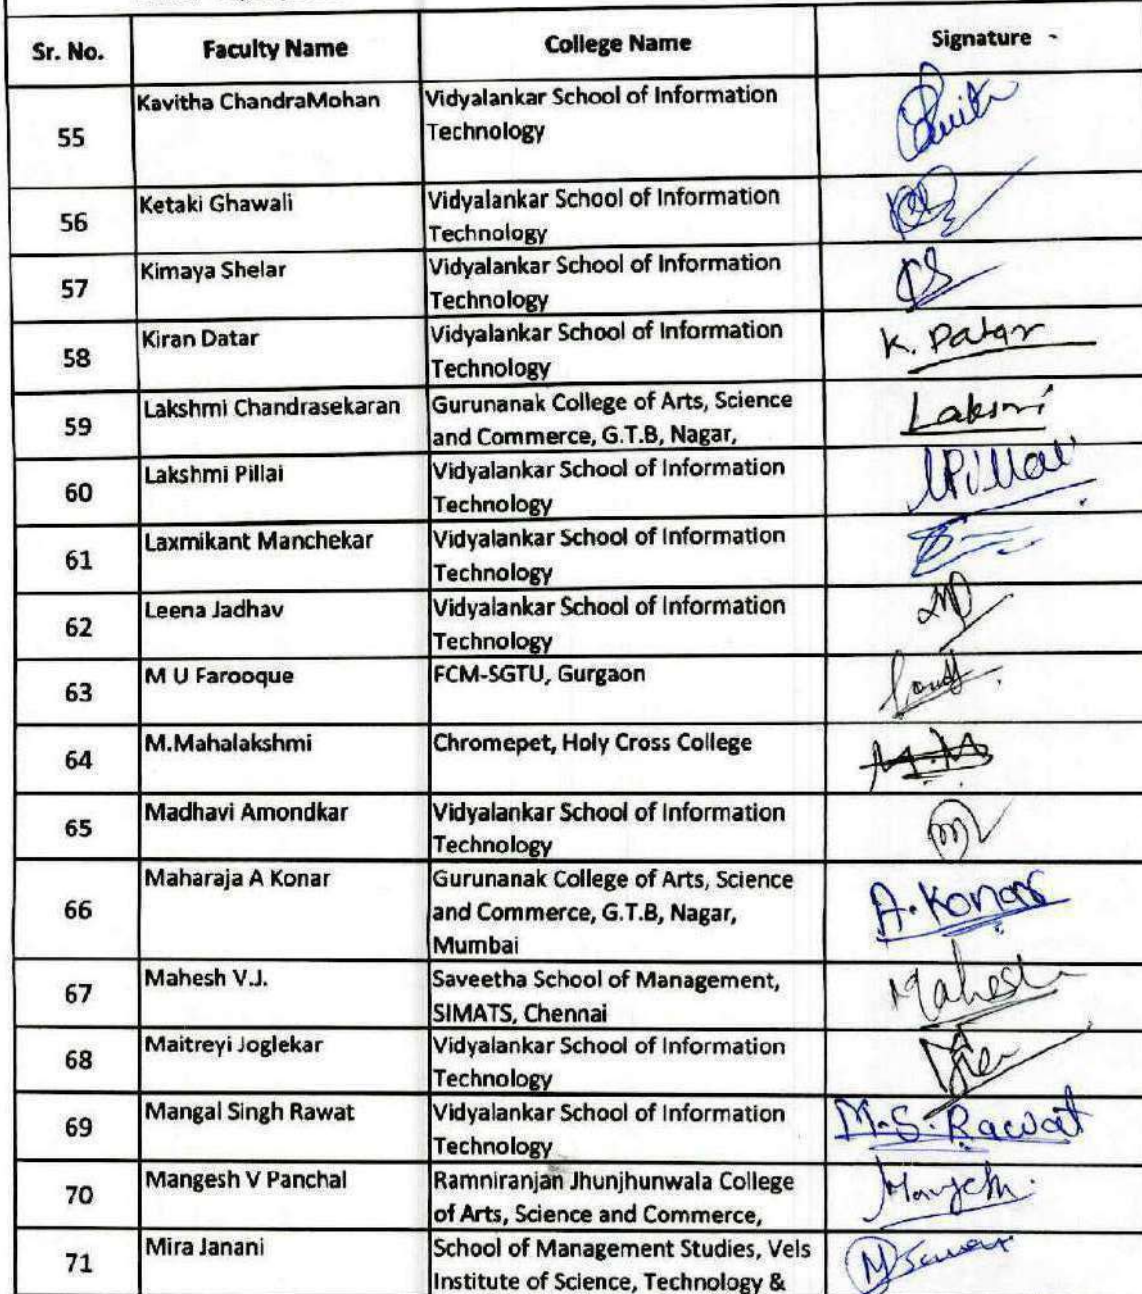 Sr. No. Faculty Name College Name Signature
55 Kavitha ChandraMohan Vidyalankar School of Information
Technology
56 Ketaki Ghawali Vidyalankar School of Information
Technology
57 Kimaya Shelar Vidyalankar School of Information
Technology
58 Kiran Datar Vidyalankar School of Information K. Datar
Technology
59 Lakshmi Chandrasekaran Gurunanak College of Arts, Science
and Commerce, G.T.B, Nagar,
60 Lakshmi Pillai Vidyalankar School of Information LPillai
Technology
61 Laxmikant Manchekar Vidyalankar School of Information
Technology
62 Leena Jadhav Vidyalankar School of Information
Technology
63 M U Farooque FCM-SGTU, Gurgaon
64 M.Mahalakshmi Chromepet, Holy Cross College M.M
65 Madhavi Amondkar Vidyalankar School of Information
Technology
66 Maharaja A Konar Gurunanak College of Arts, Science A. Konar
and Commerce, G.T.B, Nagar,
Mumbai
67 Mahesh V.J. Saveetha School of Management, Mahesh
SIMATS, Chennai
68 Maitreyi Joglekar Vidyalankar School of Information
Technology
69 Mangal Singh Rawat Vidyalankar School of Information M.S. Rawat
Technology
70 Mangesh V Panchal Ramniranjan Jhunjhunwala College
of Arts, Science and Commerce,
71 Mira Janani School of Management Studies, Vels
Institute of Science, Technology &